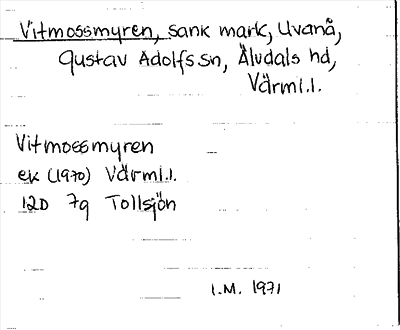 Vitmossmyren, sank mark, Uvanå,
Gustav Adolfs sn, Älvdals hd,
Värml.l.
Vitmossmyren
ek (1970) Värml.l.
12D 7g Tollsjön
I.M. 1971